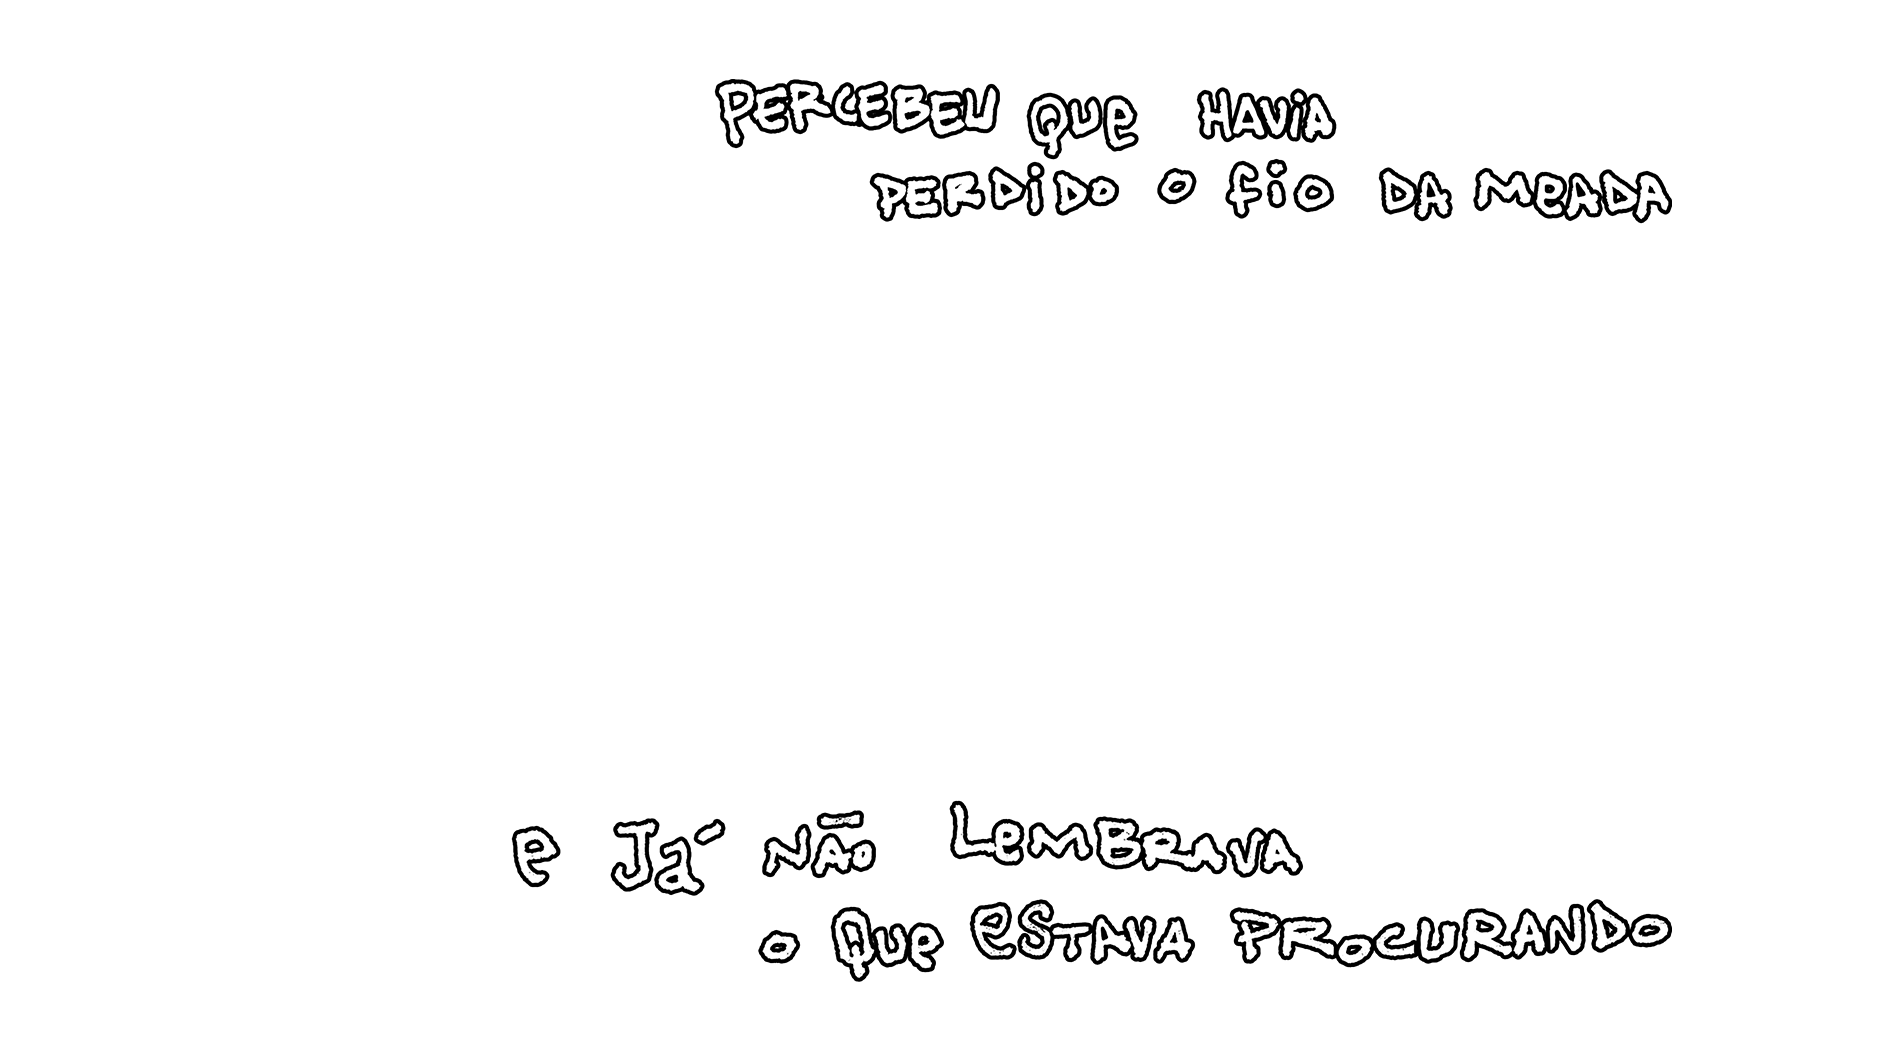 PERCEBEU QUe HAViA
PERDiDO O fio DA MeADA
e Já NÃO LeMBRAVA
o QUe eSTAVA PROCURANDO